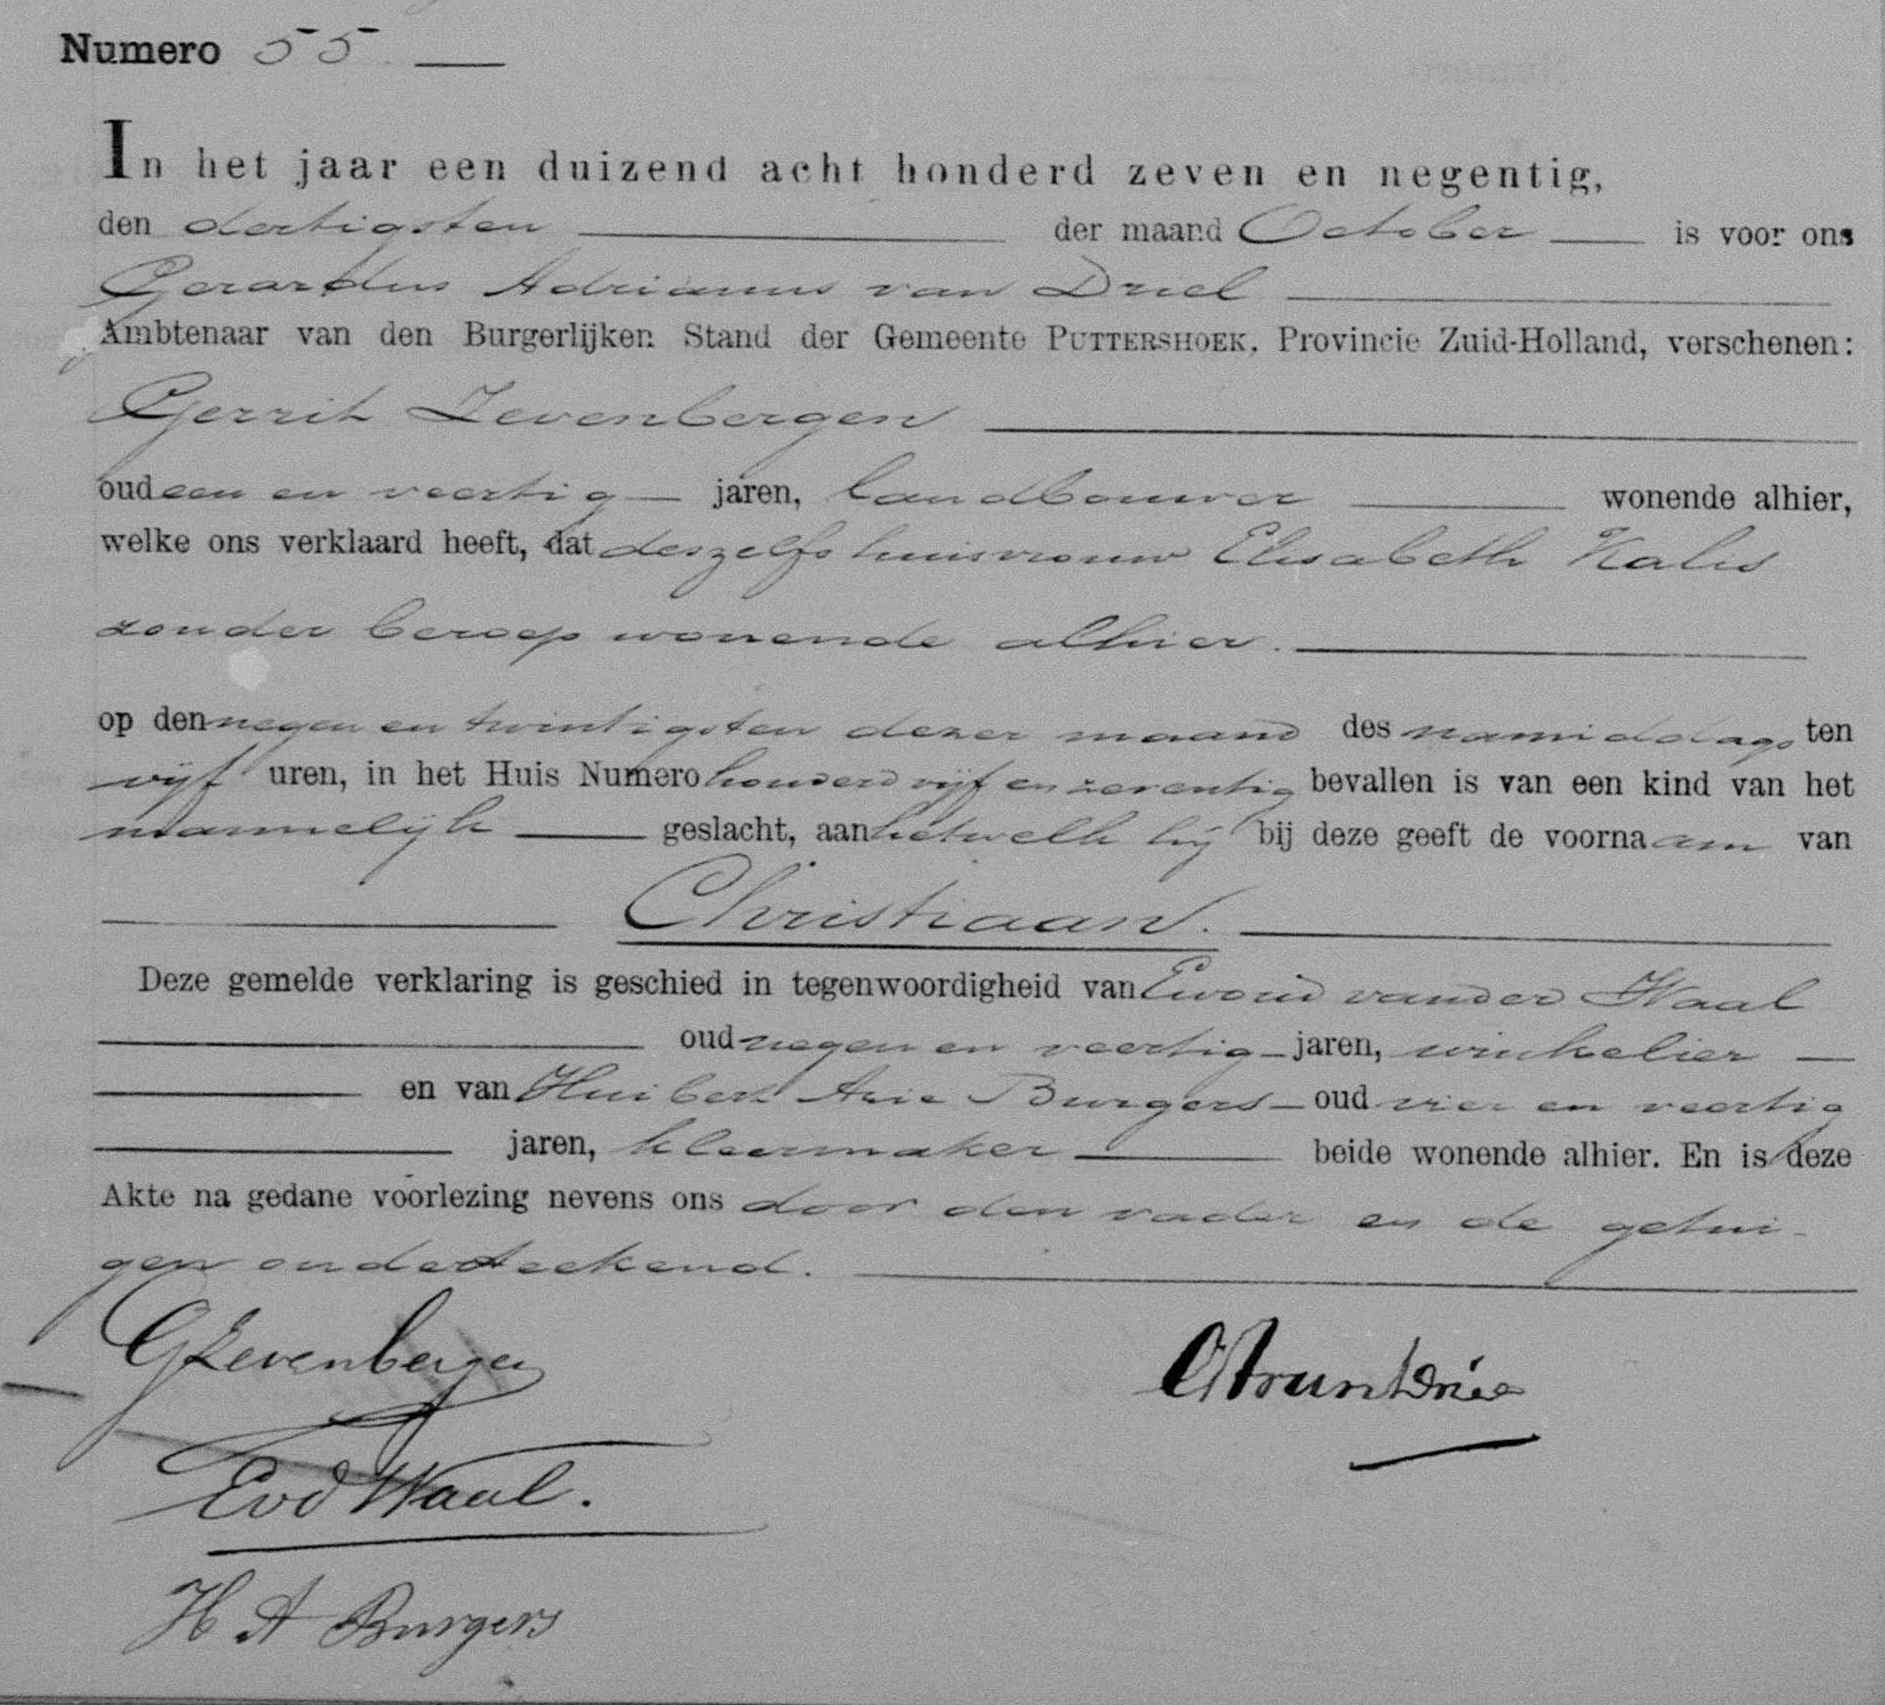 Numero 55
In het jaar een duizend acht honderd zeven en negentig,
den dertigsten der maand October is voor ons
Gerardus Adrianus van Driel
Ambtenaar van den Burgerlijken Stand der Gemeente PUTTERSHOEK, Provincie Zuid-Holland, verschenen:
Gerrit Zevenbergen
oud een en veertig jaren, landbouwer wonende alhier,
welke ons verklaard heeft, dat deszelfs huisvrouw Elisabeth Kalis
zonder beroep wonende alhier.
op den negen en twintigsten dezer maand des namiddags ten
vijf uren, in het Huis Numero honderd vijf en zeventig bevallen is van een kind van het
mannelijk geslacht, aan hetwelk hij bij deze geeft de voornaam van
Christiaan.
Deze gemelde verklaring is geschied in tegenwoordigheid van Ewoud van der Waal
oud negen en veertig jaren, winkelier
en van Huibert Arie Burgers oud vier en veertig
jaren, kleermaker beide wonende alhier. En is deze
Akte na gedane voorlezing nevens ons door den vader en de getui-
gen onderteekend.
G Zevenbergen
EvdWaal.
H A Burgers